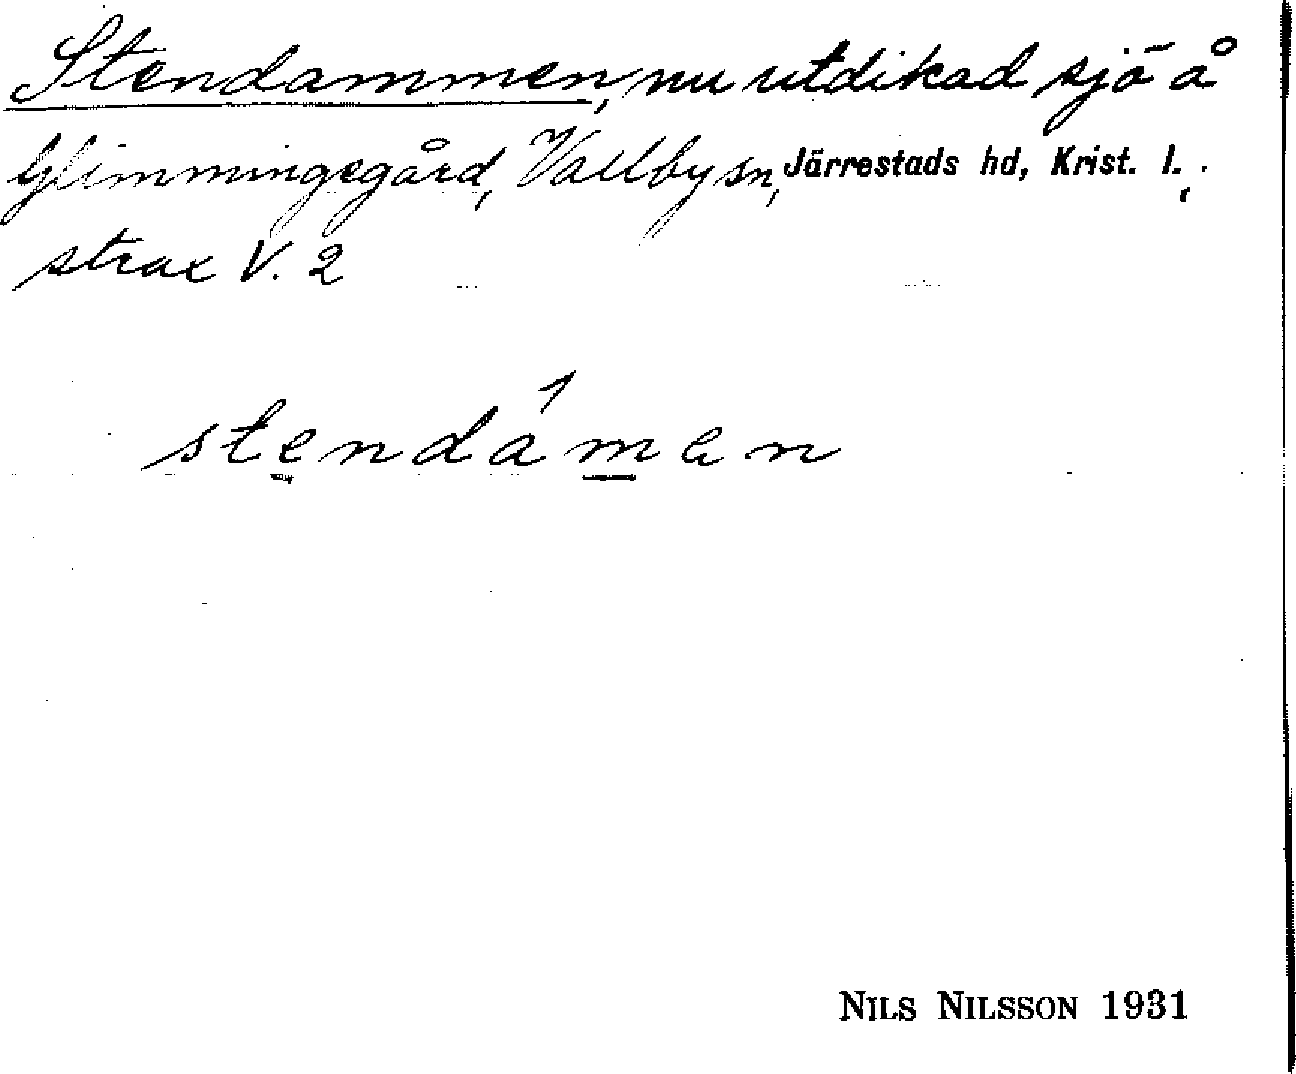 Stendammen, nu utdikad sjö å
Glimmingegård, Vallby sn, Järrestads hd, Krist. l.,
strax V. 2
stendámen
NILS NILSSON 1931